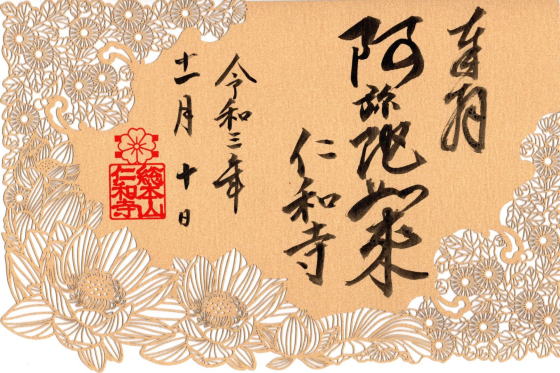 奉拝
阿弥陀如来
仁和寺
令和三年
十一月十日
総本山
仁和寺